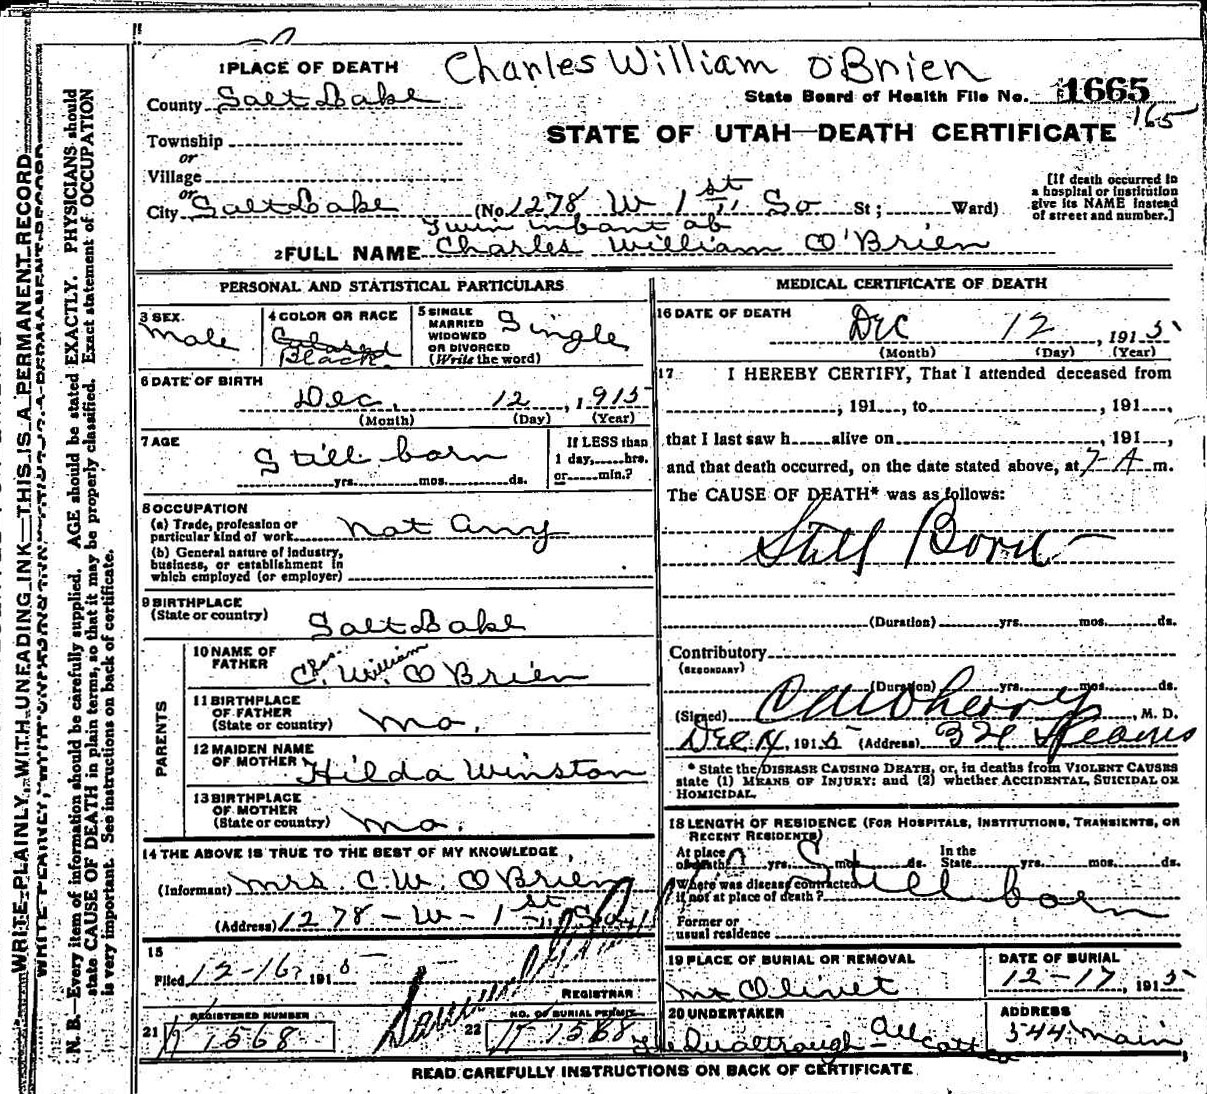 Charles William O'Brien
1 PLACE OF DEATH
County Salt Lake
State Board of Health File No. 1665
165
Township
or
Village
or
City Salt Lake
STATE OF UTAH—DEATH CERTIFICATE
(No. 1278 W 1st So St; Ward)
[If death occurred in
a hospital or institution
give its NAME instead
of street and number.]
Twin infant of
2 FULL NAME Charles William O'Brien
PERSONAL AND STATISTICAL PARTICULARS
3 SEX
Male
4 COLOR OR RACE
Colored
Black
5 SINGLE
MARRIED
WIDOWED
OR DIVORCED
(Write the word)
Single
6 DATE OF BIRTH
Dec. 12, 1915
(Month) (Day) (Year)
7 AGE
Still born
yrs. mos. ds.
If LESS than
1 day, hrs.
or min.?
8 OCCUPATION
(a) Trade, profession or
particular kind of work Not any
(b) General nature of industry,
business, or establishment in
which employed (or employer)
9 BIRTHPLACE
(State or country)
Salt Lake
PARENTS
10 NAME OF
FATHER
Chas. William
C. W. O'Brien
11 BIRTHPLACE
OF FATHER
(State or country) Mo.
12 MAIDEN NAME
OF MOTHER Hilda Winston
13 BIRTHPLACE
OF MOTHER
(State or country) Mo.
14 THE ABOVE IS TRUE TO THE BEST OF MY KNOWLEDGE
(Informant) Mrs. C. W. O'Brien
(Address) 1278-W-1st So.
15
Filed 12-16, 1915
REGISTRAR
REGISTERED NUMBER
21 1568
NO. OF BURIAL PERMIT
22 1568
MEDICAL CERTIFICATE OF DEATH
16 DATE OF DEATH
Dec 12, 1915
(Month) (Day) (Year)
17 I HEREBY CERTIFY, That I attended deceased from
, 191 , to , 191 ,
that I last saw h alive on , 191 ,
and that death occurred, on the date stated above, at 7 A m.
The CAUSE OF DEATH* was as follows:
Still Born
(Duration) yrs. mos. ds.
Contributory
(SECONDARY)
(Duration) yrs. mos. ds.
(Signed) , M. D.
Dec 14, 1915 (Address)
* State the DISEASE CAUSING DEATH, or, in deaths from VIOLENT CAUSES
state (1) MEANS OF INJURY; and (2) whether ACCIDENTAL, SUICIDAL OR
HOMICIDAL.
18 LENGTH OF RESIDENCE (FOR HOSPITALS, INSTITUTIONS, TRANSIENTS, OR
RECENT RESIDENTS)
At place
of death yrs. mos. ds. In the
State yrs. mos. ds.
Where was disease contracted
if not at place of death?
Still born
Former or
usual residence
19 PLACE OF BURIAL OR REMOVAL
Mt Olivet
DATE OF BURIAL
12-17, 1915
20 UNDERTAKER
ADDRESS
544 Main
READ CAREFULLY INSTRUCTIONS ON BACK OF CERTIFICATE
WRITE PLAINLY, WITH UNFADING INK—THIS IS A PERMANENT RECORD
N. B.—Every item of information should be carefully supplied. AGE should be stated EXACTLY. PHYSICIANS should
state CAUSE OF DEATH in plain terms, so that it may be properly classified. Exact statement of OCCUPATION
is very important. See instructions on back of certificate.